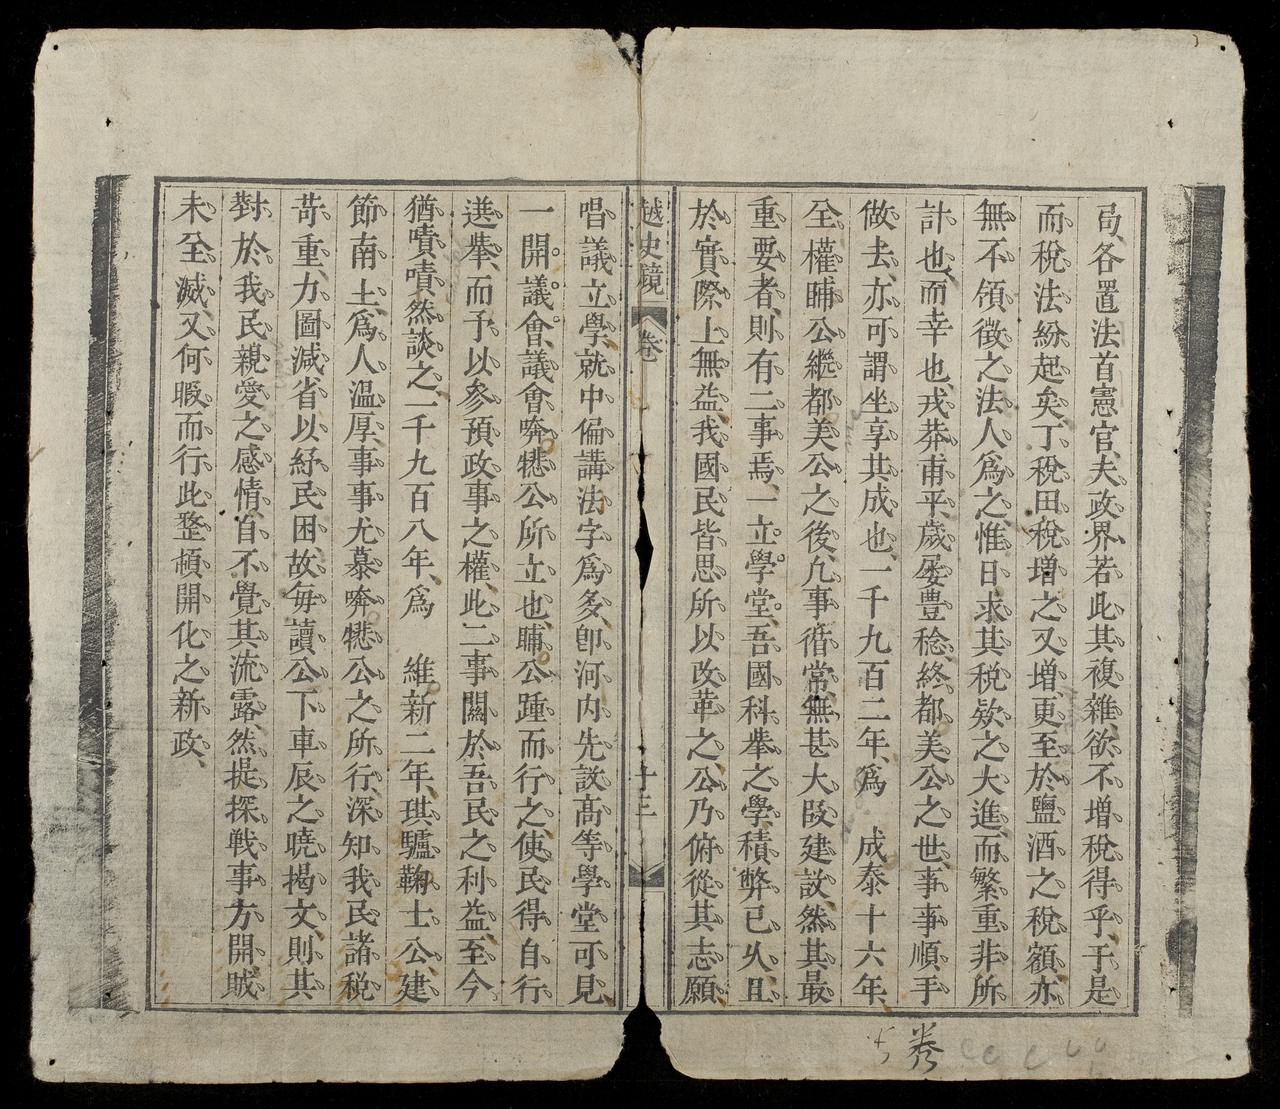 局、各置法首憲官、夫政界若此其複雜、欲不增稅得乎、于是
而稅法紛起矣、丁稅田稅增之又增、更至於鹽酒之稅額、亦
無不領徵之法、人爲之惟日求其稅欵之大進、而繁重非所
計也、而幸也、戎莽甫平、歲屡豊稔、終都美公之世、事事順手
做去、亦可謂坐享其成也、一千九百二年、爲 成泰十六年、
全權晡公繼都美公之後、凢事循常、無甚大段建設、然其最
重要者、則有二事焉、一立學堂、吾國科舉之學、積弊已久、且
於實際上無益、我國民皆思所以改革之、公乃俯從其志願
唱議立學、就中偏講法字爲多、卽河内先設高等學堂可見
一開議會、議會㗢㦬公所立也、晡公踵而行之、使民得自行
選舉、而予以參預政事之權、此二事關於吾民之利益、至今
猶嘖嘖然談之、一千九百八年、爲 維新二年、琪驢鞠士公、建
節南土、爲人溫厚、事事尤慕㗢㦬公之所行、深知我民諸稅
苛重、力圖減省、以紓民困、故毎讀公下車辰之曉揭文、則其
對於我民親愛之感情、自不覺其流露、然提探戰事方開、賊
未全滅、又何暇而行此整頓開化之新政、
越史鏡 卷 十三
卷